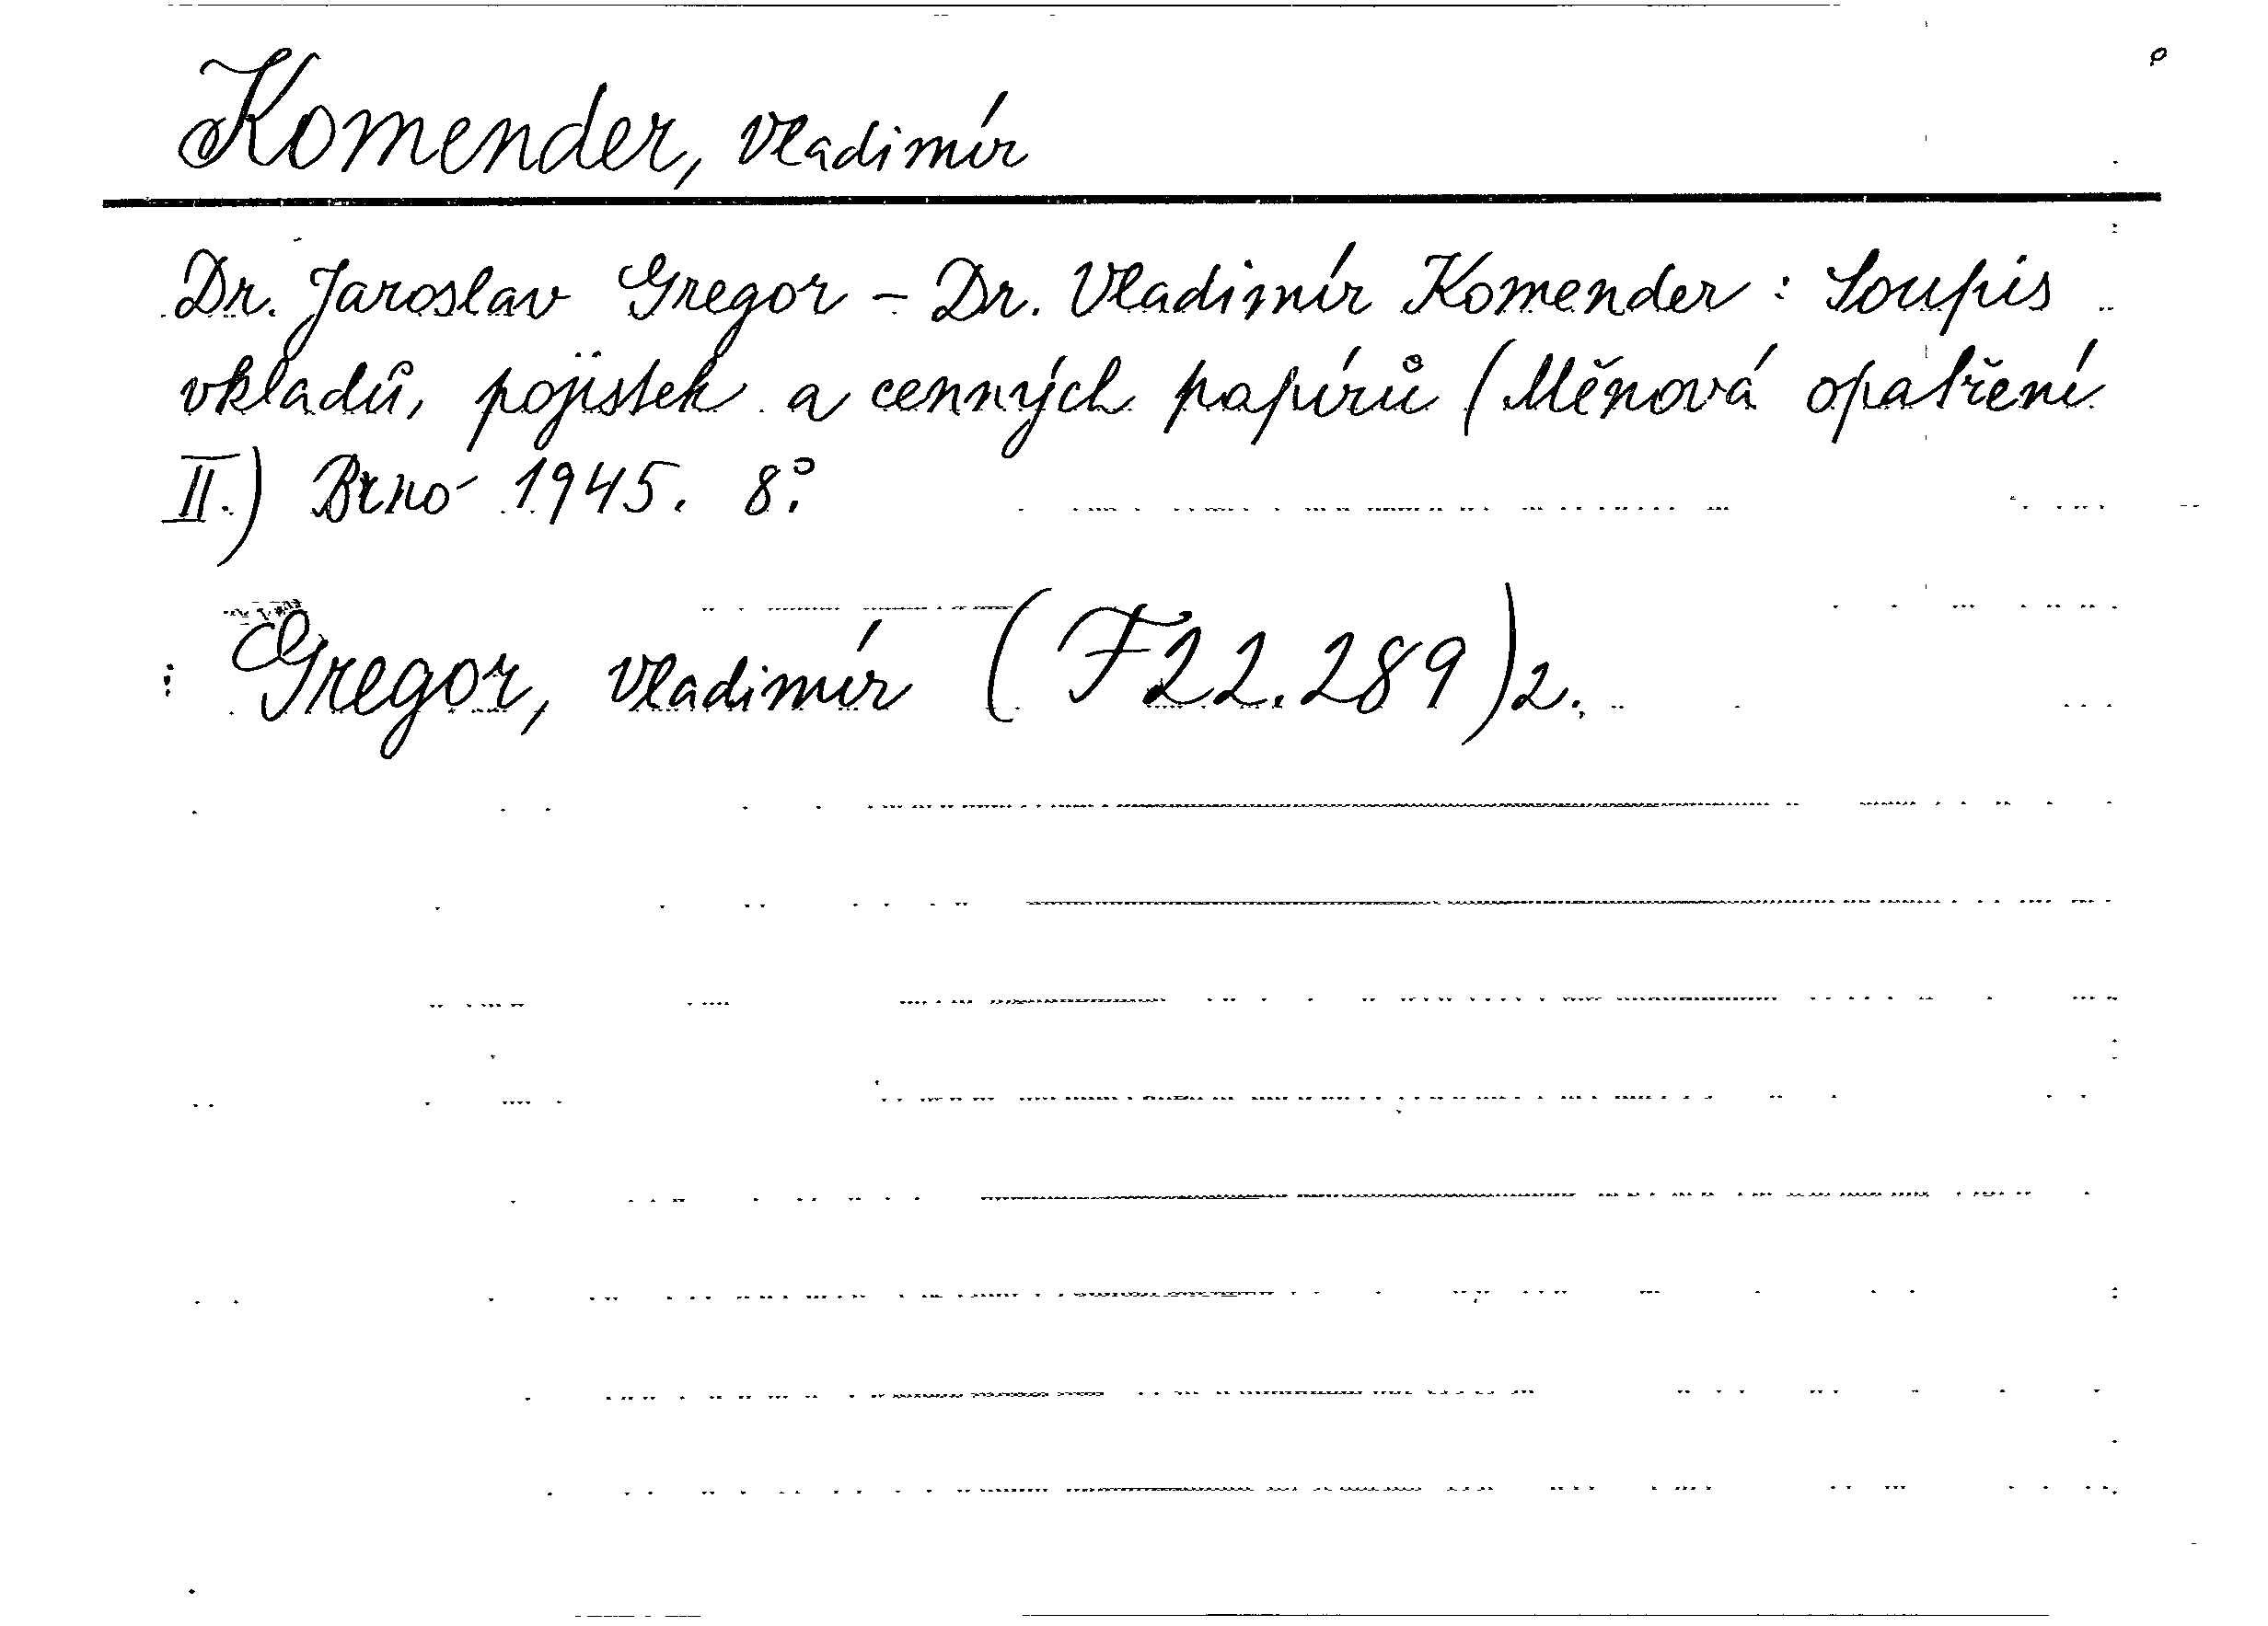 Komender, Vladimír
Dr. Jaroslav Gregor - Dr. Vladimír Komender : Soupis
vkladů, pojistek a cenných papírů (Měnová opatření
II.) Brno 1945. 8°.
Gregor, Vladimír (F22.289)2.